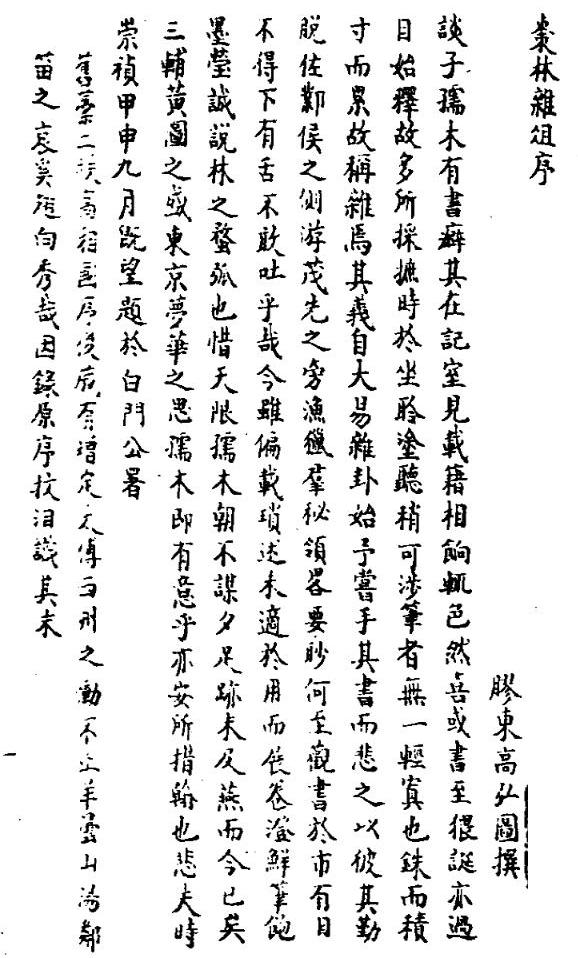 棗林雜俎序
膠東高弘圖撰
談子孺木有書癖其在記室見載籍相餉輒色然喜或書至猥誕亦過
目始釋故多所採摭時於坐聆塗聽稍可涉筆者無一輕寘也銖而積
寸而累故稱雜焉其義自大易雜卦始予嘗手其書而悲之以彼其勤
脫佐鄴侯之側游茂先之旁漁獵羣秘領畧要眇何至觀書於市有目
不得下有舌不敢吐乎哉今雖偏載瑣述未適於用而展卷澄鮮筆飽
墨瑩誠說林之蝥弧也惜天限孺木朝不謀夕足跡未及燕而今已矣
三輔黃圖之盛東京夢華之思孺木即有意乎亦安所措翰也悲夫時
崇禎甲申九月既望題於白門公署
舊藁二帙高相國序後嵗有增定太傅西州之慟不止羊曇山陽鄰
笛之哀奚啻向秀哉因錄原序抆泪識其末